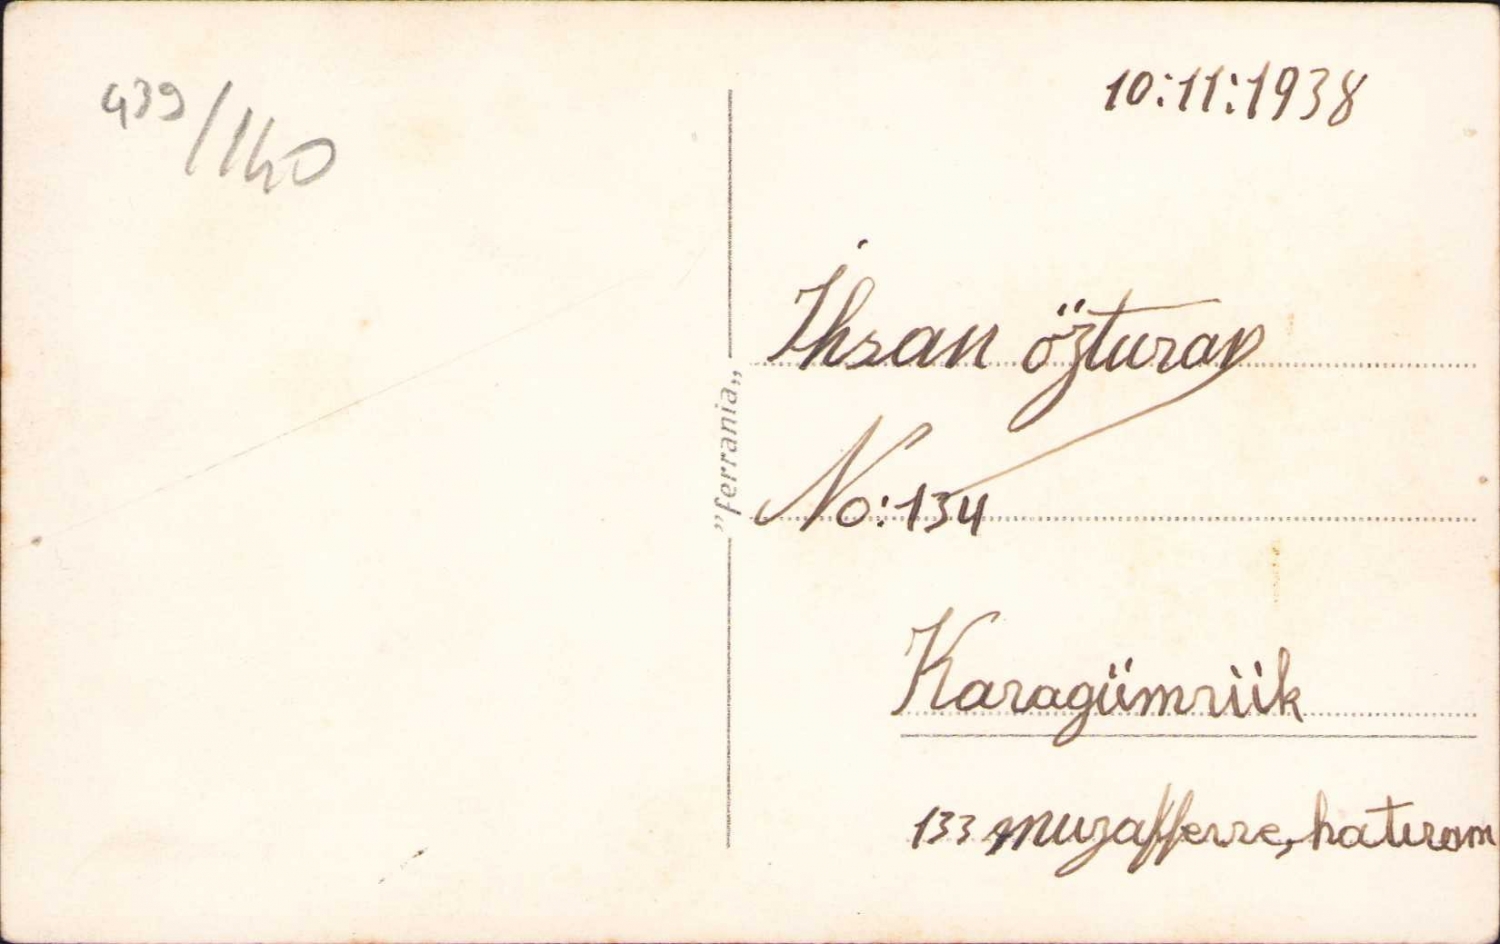 439/140
10:11:1938
İhsan özturan
No:134
"ferrania„
Karagümrük
133 muzafferre, hatıram